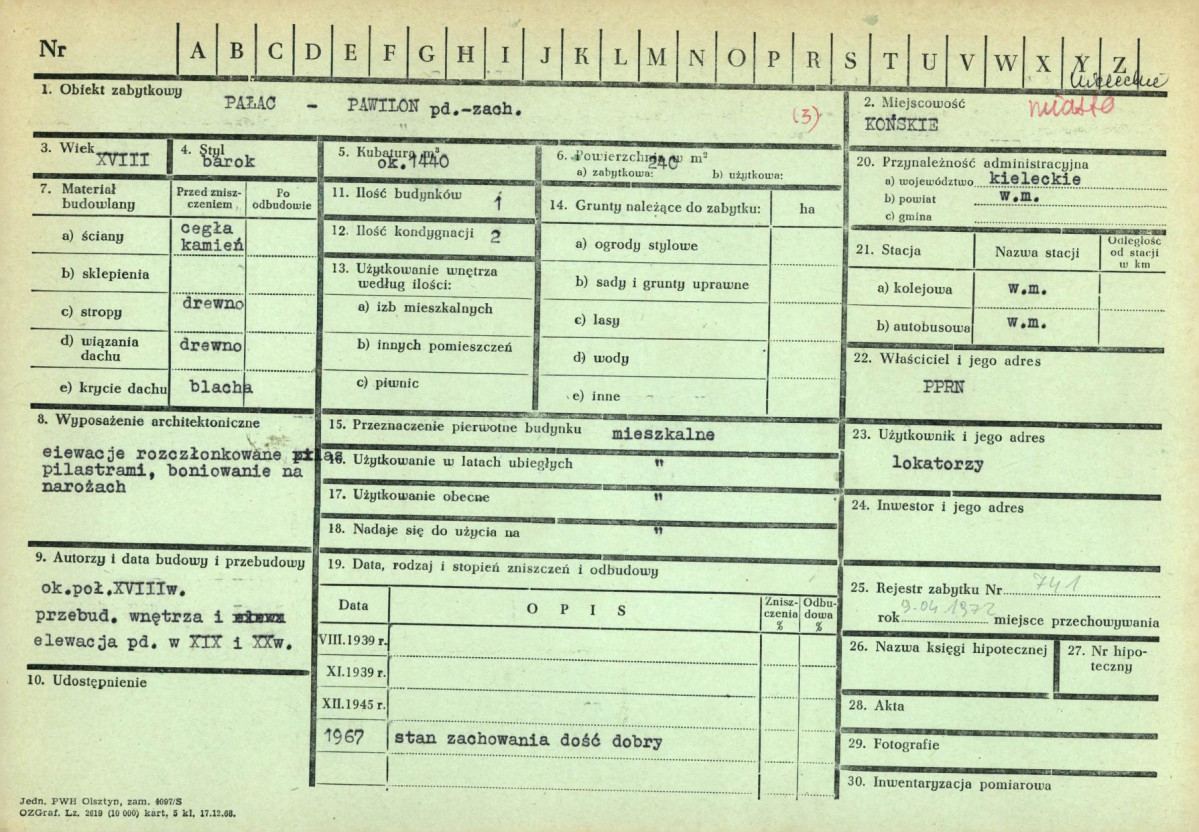 Nr A B C D E F G H I J K L M N O P R S T U V W X Y Z
1. Obiekt zabytkowy
PAŁAC - PAWILON pd.-zach.
(3)
2. Miejscowość
miasto
KOŃSKIE
3. Wiek
XVIII
4. Styl
barok
5. Kubatura m³
ok. 1440
6. Powierzchnia w m²
240
a) zabytkowa: b) użytkowa:
7. Materiał budowlany
Przed znisz-
czeniem
Po
odbudowie
a) ściany
cegła
kamień
b) sklepienia
c) stropy drewno
d) wiązania
dachu
drewno
e) krycie dachu blacha
8. Wyposażenie architektoniczne
elewacje rozczłonkowane
pilastrami, boniowanie na
narożach
9. Autorzy i data budowy i przebudowy
ok.poł.XVIIIw.
przebud. wnętrza i
elewacja pd. w XIX i XXw.
10. Udostępnienie
11. Ilość budynków 1
12. Ilość kondygnacji 2
13. Użytkowanie wnętrza
według ilości:
a) izb mieszkalnych
b) innych pomieszczeń
c) piwnic
14. Grunty należące do zabytku: ha
a) ogrody stylowe
b) sady i grunty uprawne
c) lasy
d) wody
e) inne
15. Przeznaczenie pierwotne budynku mieszkalne
16. Użytkowanie w latach ubiegłych "
17. Użytkowanie obecne "
18. Nadaje się do użycia na "
19. Data, rodzaj i stopień zniszczeń i odbudowy
Data OPIS Znisz-
czenia
% Odbu-
dowa
%
VIII.1939 r.
XI.1939 r.
XII.1945 r.
1967 stan zachowania dość dobry
20. Przynależność administracyjna
a) województwo kieleckie
b) powiat w.m.
c) gmina
21. Stacja Nazwa stacji Odległość
od stacji
w km
a) kolejowa w.m.
b) autobusowa w.m.
22. Właściciel i jego adres
PPRN
23. Użytkownik i jego adres
lokatorzy
24. Inwestor i jego adres
25. Rejestr zabytku Nr 741
rok 9.04 1972 miejsce przechowywania
26. Nazwa księgi hipotecznej
27. Nr hipo-
teczny
28. Akta
29. Fotografie
30. Inwentaryzacja pomiarowa
Jedn. PWH Olsztyn, zam. 4097/S
OZGraf. Lz. 2619 (10 000) kart, 5 kl. 17.12.66.